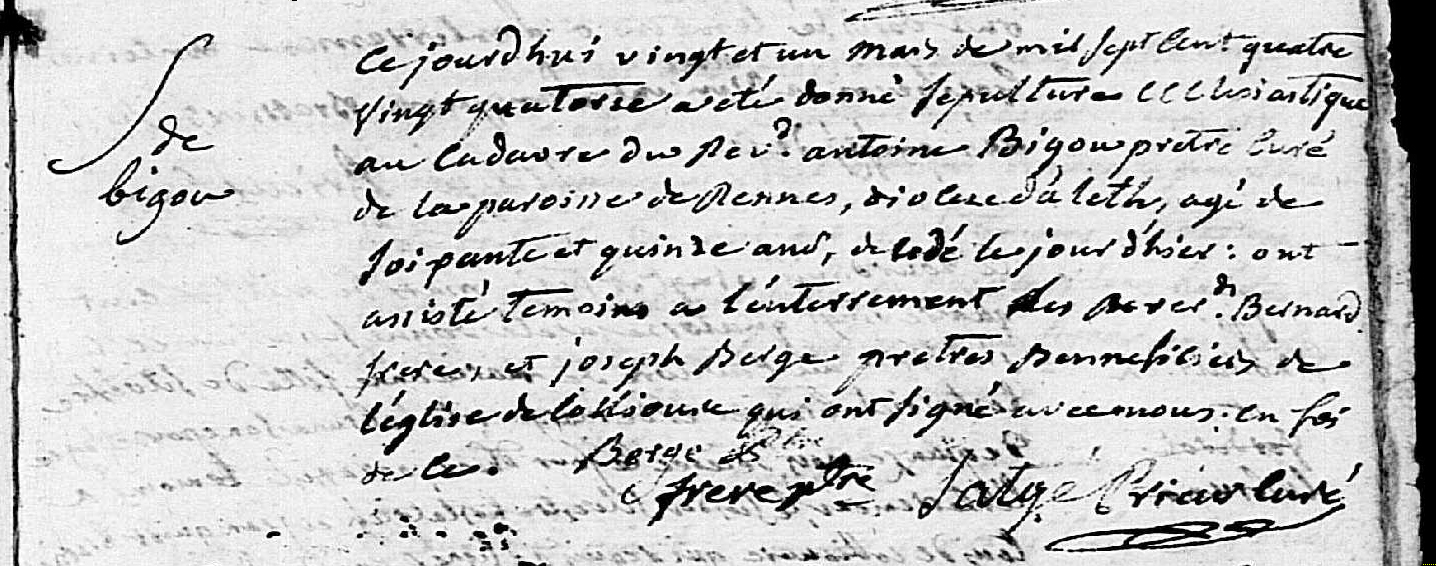 S
de
bigou
Ce jourdhui vingt et un mars de mil sept cent quatre
vingt quatorse a eté donné sepulture ecclésiastique
au cadavre du Rev.d antoine Bigou pretre curé
de la paroisse de Rennes, diocese d'aleth, agé de
soixante et quinze ans, decedé le jour d'hier : ont
assisté temoins a l'enterrement les Rever.ds Bernard
freres et joseph Berge pretres Bennefisiers de
l'église de collioure qui ont signé avec nous. en foi
de ce.
Berge ptre
frere ptre Satgé Prieur Curé